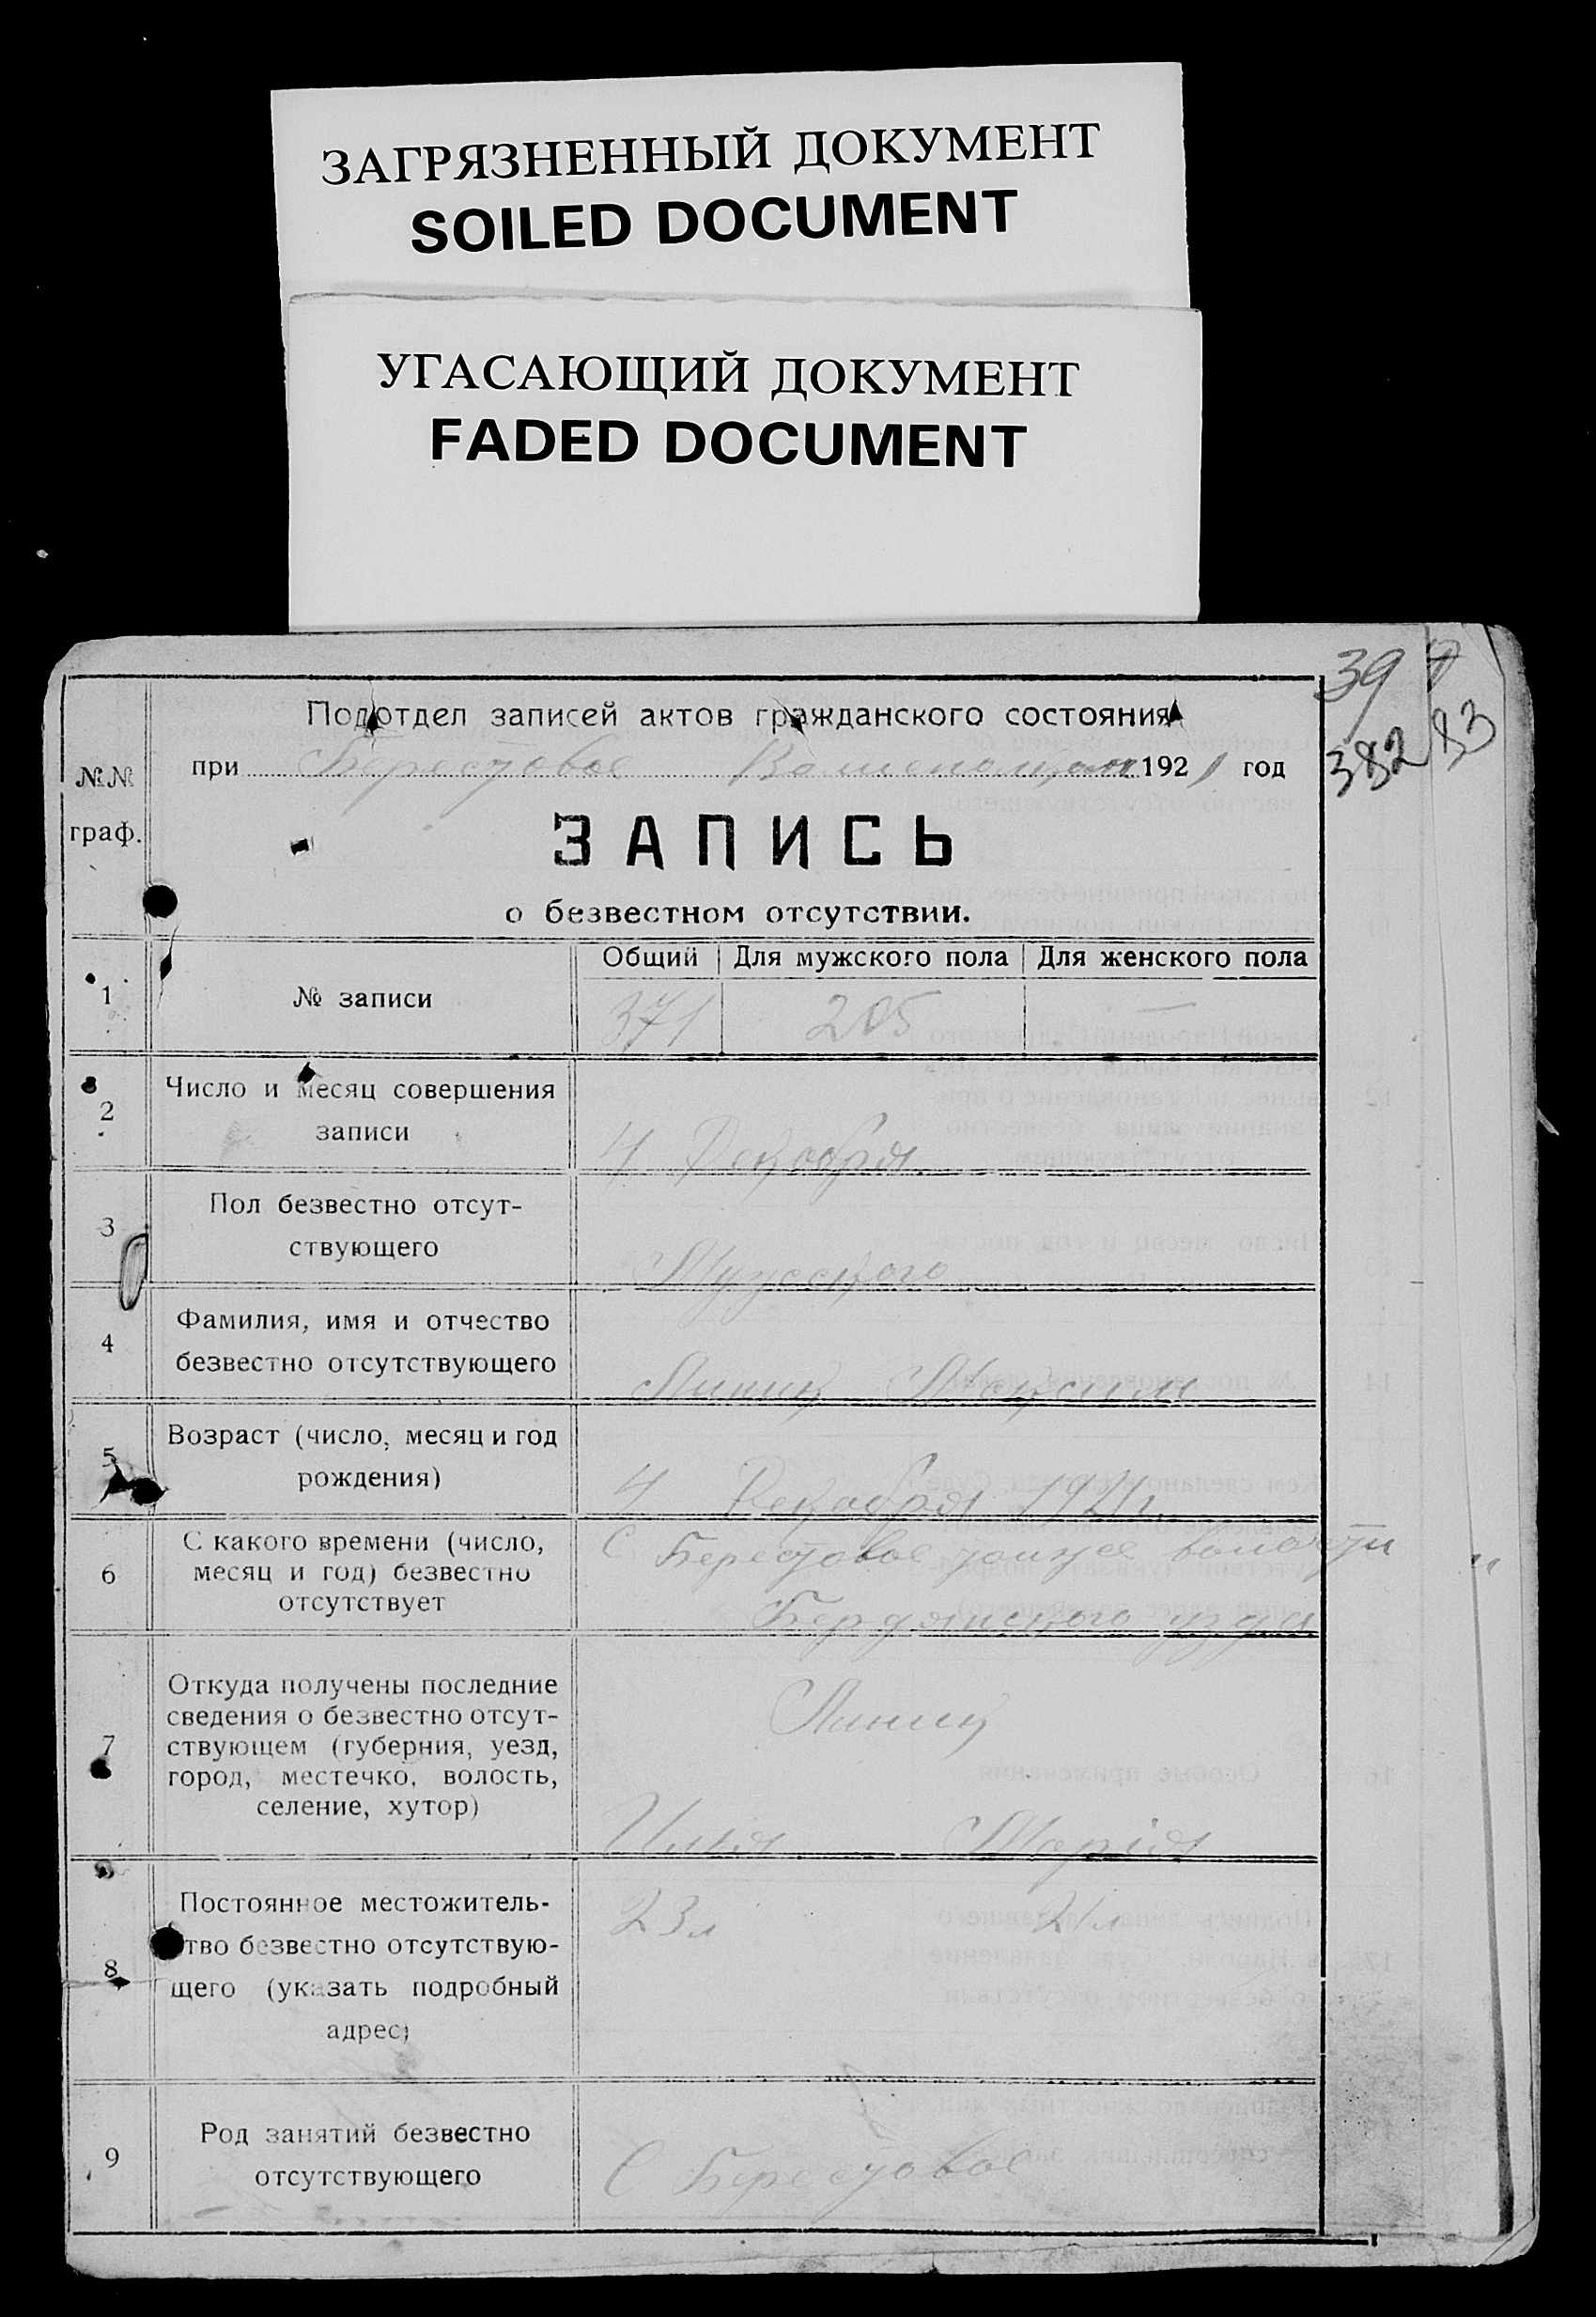 ЗАГРЯЗНЕННЫЙ ДОКУМЕНТ
SOILED DOCUMENT
УГАСАЮЩИЙ ДОКУМЕНТ
FADED DOCUMENT
39
382 83
Подотдел записей актов гражданского состояния
при Берестовое 1921 год
№№
граф.
ЗАПИСЬ
о безвестном отсутствии.
Общий Для мужского пола Для женского пола
1 № записи 371 205 —
2 Число и месяц совершения
записи 4 Декабря
3 Пол безвестно отсут-
ствующего Мужского
4 Фамилия, имя и отчество
безвестно отсутствующего Линник Максим
5 Возраст (число, месяц и год
рождения) 4 Декабря 1921 г.
6 С какого времени (число,
месяц и год) безвестно
отсутствует
С Берестовое волости
Бердянского уезда
7 Откуда получены последние
сведения о безвестно отсут-
ствующем (губерния, уезд,
город, местечко, волость,
селение, хутор)
Линник
Илья Марія
8 Постоянное местожитель-
ство безвестно отсутствую-
щего (указать подробный
адрес)
23 л 21 л
9 Род занятий безвестно
отсутствующего
С Берестовое